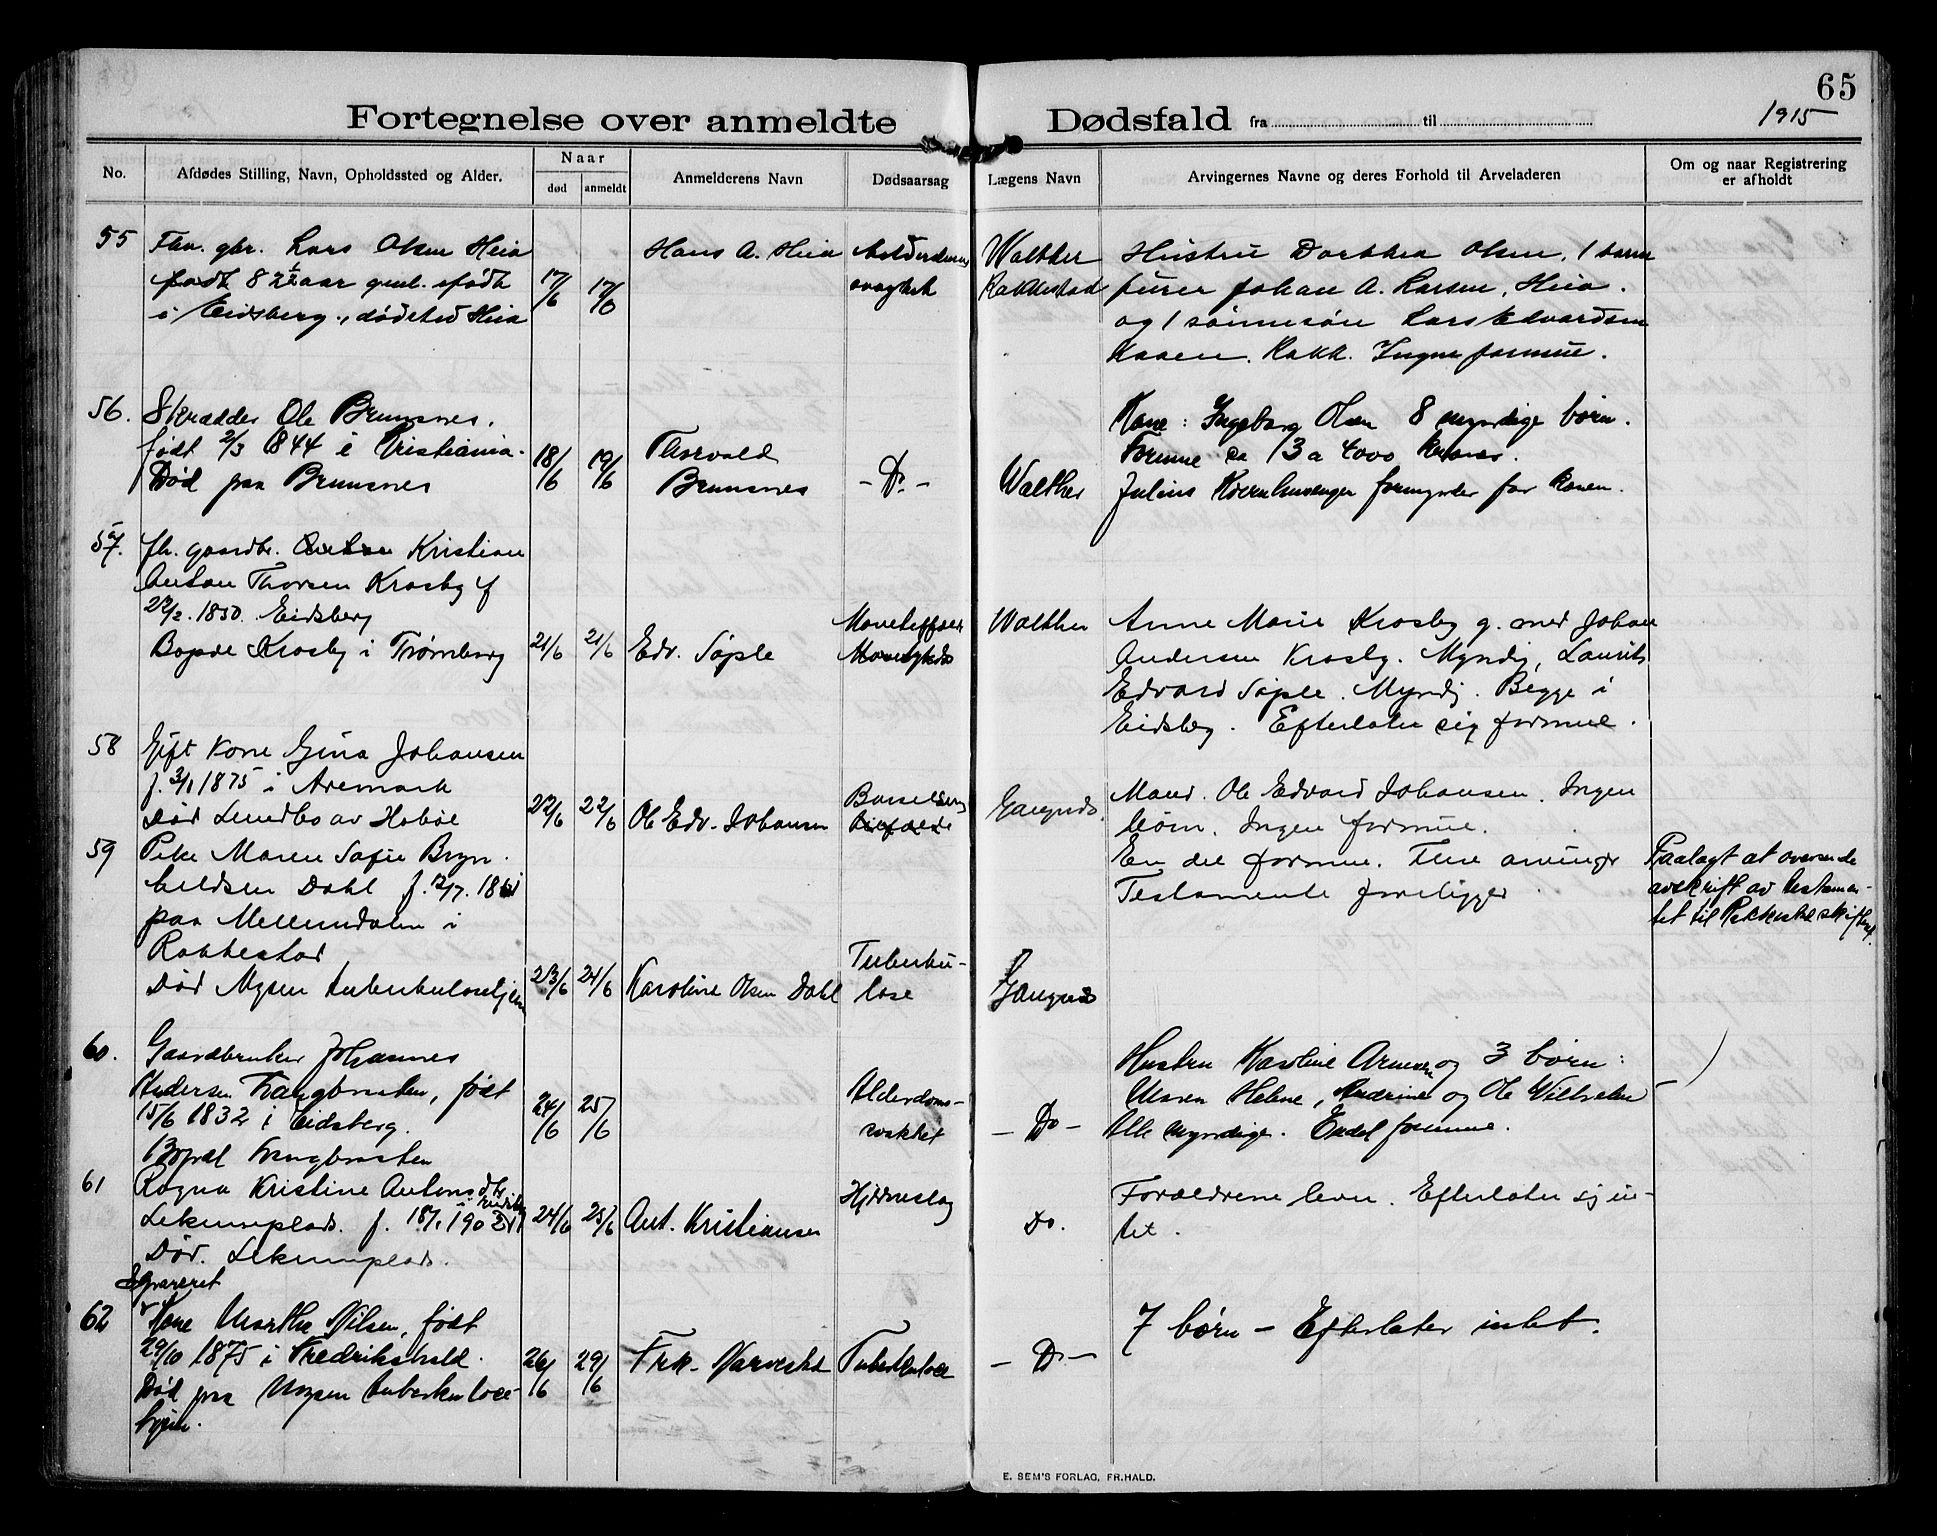 65
Fortegnelse over anmeldte Dødsfald fra til 1915
No.
Afdødes Stilling, Navn, Opholdssted og Alder.
Naar
død
anmeldt
Anmelderens Navn
Dødsaarsag
Lægens Navn
Arvingernes Navne og deres Forhold til Arveladeren
Om og naar Registrering
er afholdt
55
Fhv. gbr. Lars Olsen Heia
født 82½ aar gml. født
i Eidsberg., dødsted Heia
17/6
17/6
Hans A. Heia
Alderdoms
svaghet
Walther
Rakkestad
Hustru Dorthea Olsen, 1 barn
Johan A. Larsen, Heia.
og 1 sønnesøn Lars Edvardsen
Kaaen. Rakk. Ingen formue.
56.
Skrædder Ole Brunsnes.
født 2/3 1844 i Kristiania.
Død paa Brunsnes
18/6
19/6
Thorvald
Brunsnes
- Do. -
Walther
Kone: Ingeborg Olsen 8 myndige børn.
Formue ca 3 a 4000 kroner.
Julius formynder for konen.
57.
fh. gaardbr. Kristian
Anton Thorsen Krosby f
22/2. 1850. Eidsberg
Bopæl Krosby i Trømborg
21/6
21/6
Edv. Søple
Walther
Anne Marie Krosby g. med Johan
Andersen Krosby. Myndig, Laurits
Edvard Søple. Myndig. Begge i
Eidsberg. Efterlater sig formue.
58
Gift Kone Gina Johansen
f. 3/1 1875 i Aremark
Død Lundbo av Hobøl
22/6
22/6
Ole Edv. Johansen
Barselseng
Mand. Ole Edvard Johansen. Ingen
børn. Ingen formue.
59
Pike Maren Sofie Bryn-
hildsen Dahl f. 12/7. 18
paa Mellemdalen i
Rakkestad
Død Mysen tuberkulosehjem
23/6
24/6
Karoline Olsen Dahl
Tuberku-
lose
En del formue. Flere arvinger
Testamente foreligger
Paalagt at oversende
avskrift av testamen-
tet til Rakkestad skifteret.
60.
Gaardbruker Johannes
Andersen Trangbrasten, født
15/6 1832 i Eidsberg.
Bopæl Trangbrasten
24/6
25/6
Alderdoms-
svakhet
- Do -
Hustru Karoline Arnesen og 3 børn:
Maren Helene, Andrine og Ole Wilhelm
Alle myndige. Endel formue.
61
Ragna Kristine Antonsdtr
Lekumplads. f. 18/1 190
Død. Lekumplads.
24/6
25/6
Ant. Kristiansen
Hjerneslag
Do.
Forældrene lever. Efterlater sig in-
tet.
62
Separeret
Kone Marthe Nilsen, født
29/10 1875 i Fredrikshald.
Død paa Mysen tuberkulose-
hjem.
26/6
29/6
Frk. Narvestad
Tuberkulose
- Do -
7 børn - Efterlater intet.
E. SEM'S FORLAG, FR.HALD.